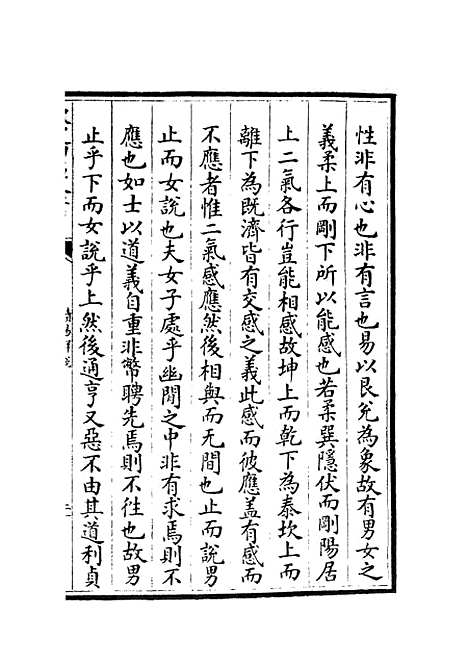 性非有心也非有言也易以艮兊為象故有男女之
義柔上而剛下所以能感也若柔巽隱伏而剛陽居
上二氣各行豈能相感故坤上而乾下為泰坎上而
離下為既濟皆有交感之義此感而彼應盖有感而
不應者惟二氣感應然後相與而无間也止而說男
止而女說也夫女子處乎幽閒之中非有求焉則不
應也如士以道義自重非幣聘先焉則不徃也故男
止乎下而女說乎上然後通亨又惡不由其道利貞